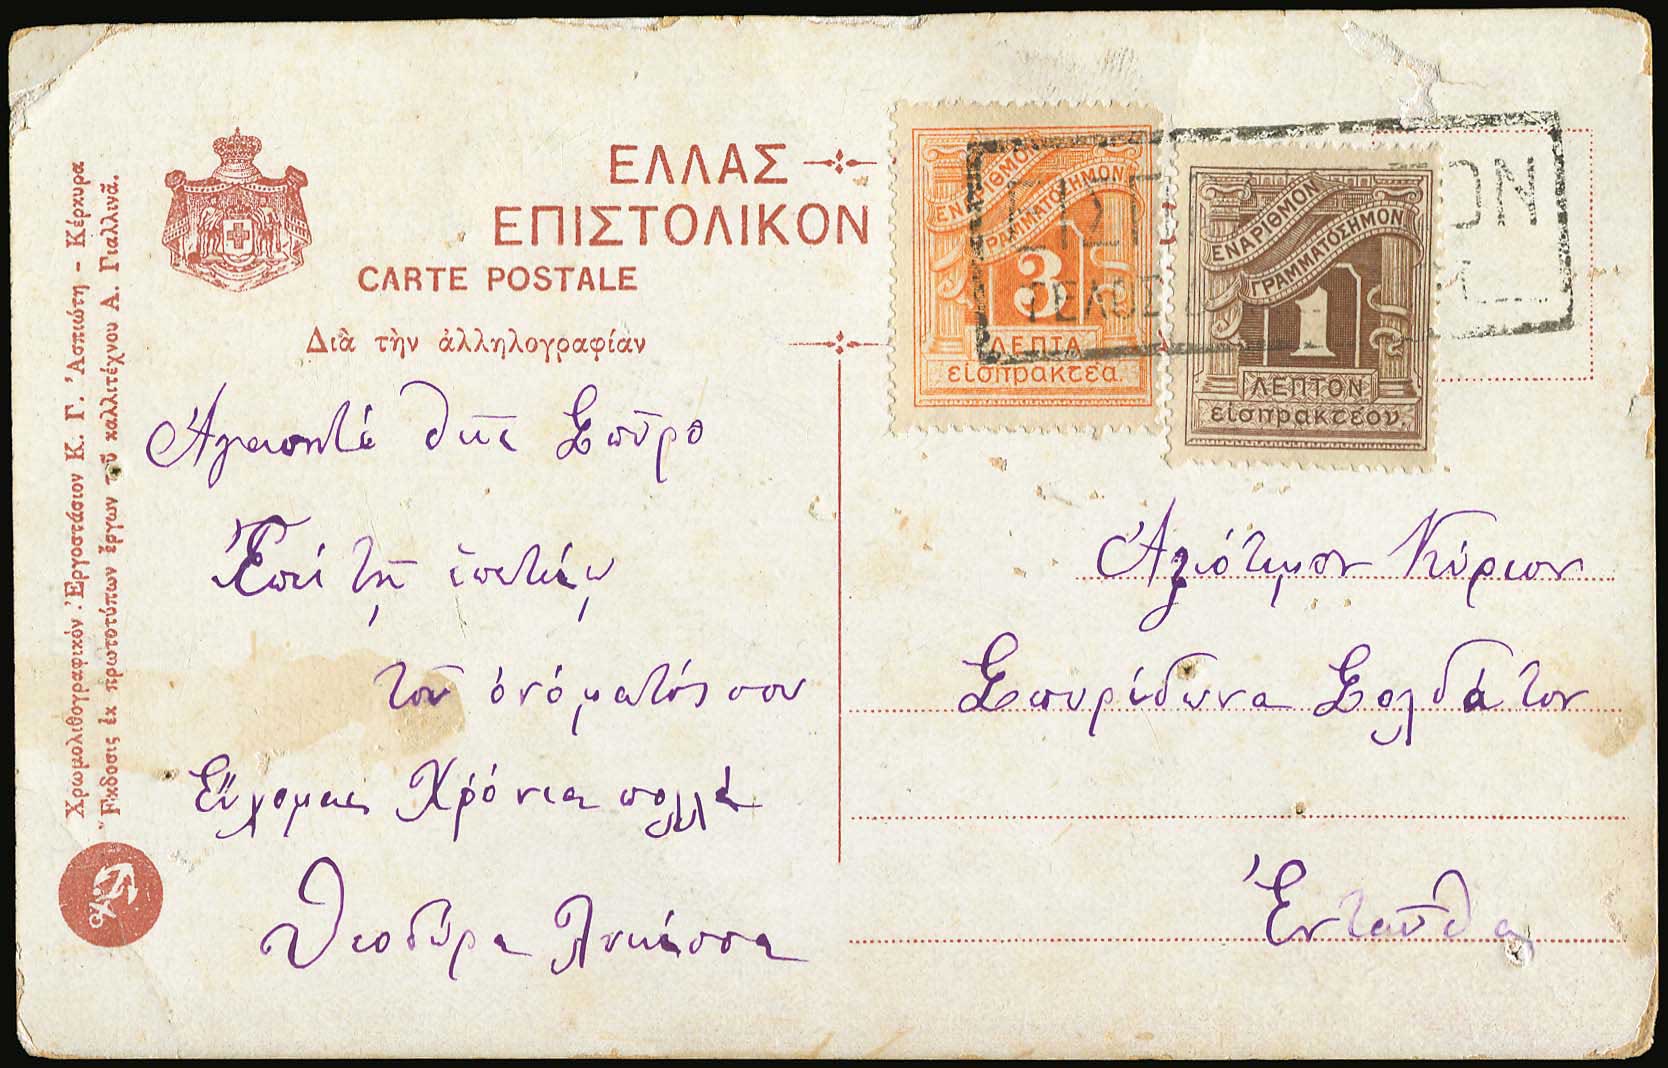 ΕΛΛΑΣ
ΕΠΙΣΤΟΛΙΚΟΝ
CARTE POSTALE
Διὰ τὴν ἀλληλογραφίαν
Χρωμολιθογραφικόν Ἐργοστάσιον Κ. Γ. Ἀσπιώτη - Κέρκυρα
Ἔκδοσις ἐκ πρωτοτύπων ἔργων τοῦ καλλιτέχνου Α. Γιαλλινᾶ.
ΕΝΑΡΙΘΜΟΝ
ΓΡΑΜΜΑΤΟΣΗΜΟΝ
3
ΛΕΠΤΑ
εἰσπρακτέα.
ΕΝΑΡΙΘΜΟΝ
ΓΡΑΜΜΑΤΟΣΗΜΟΝ
1
ΛΕΠΤΟΝ
εἰσπρακτέον.
Ἀγαπητέ Σπῦρο
Ἐπί τῇ ἐπετείῳ
τοῦ ὀνόματός σου
Εὔχομαι Χρόνια πολλά
Θεοδώρα
Ἀξιότιμον Κύριον
Σπυρίδωνα Σολδάτον
Ἐνταῦθα